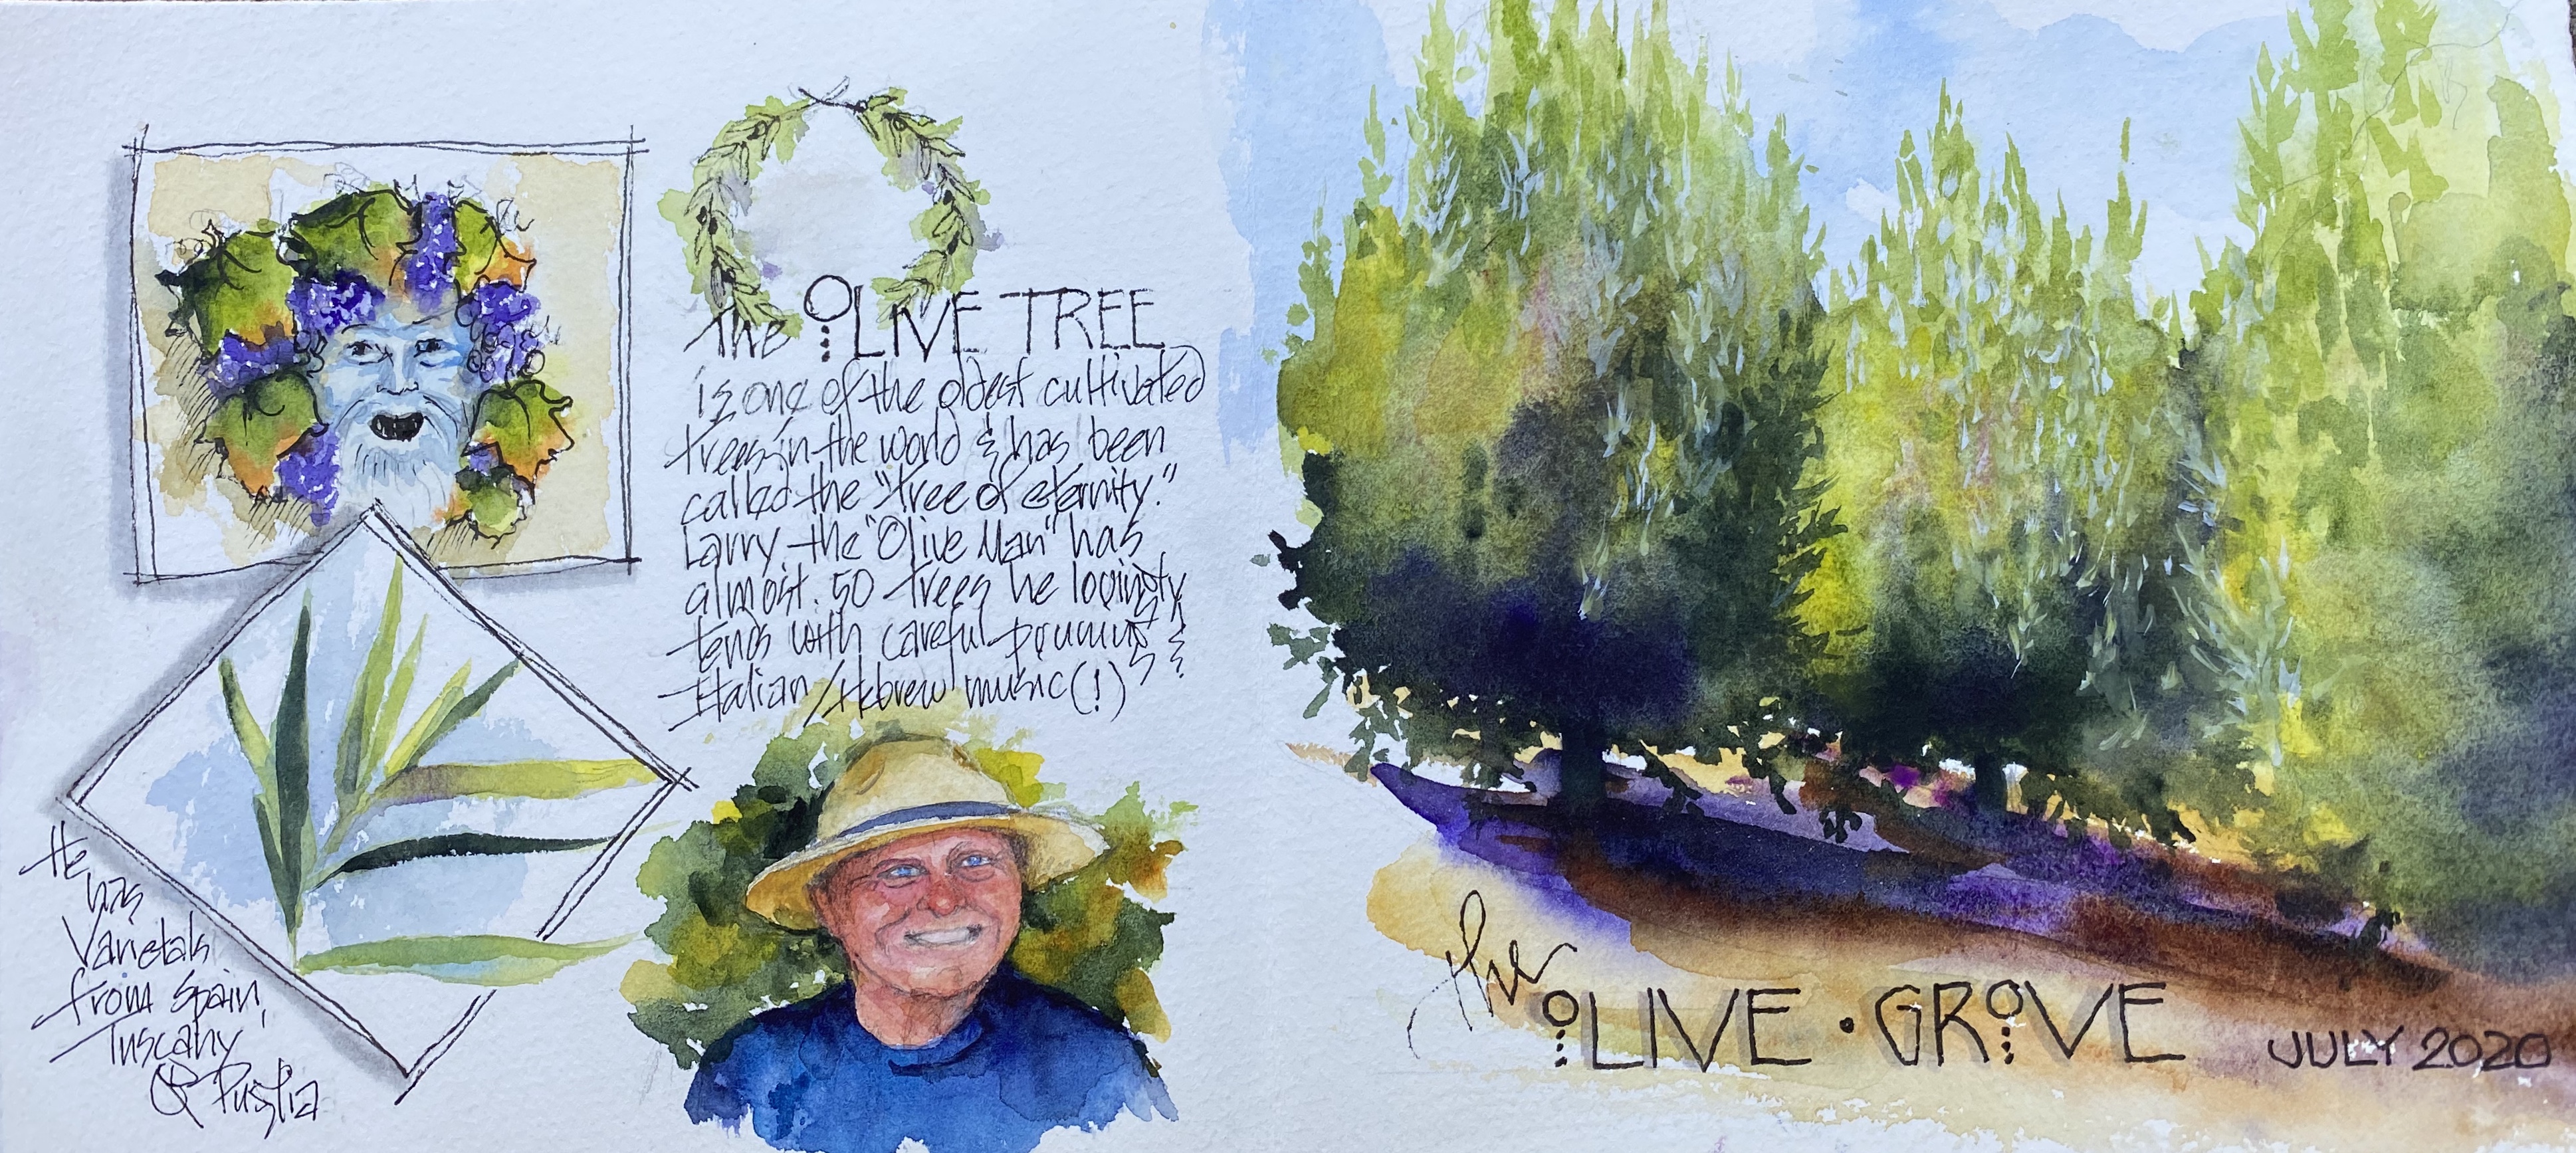 The OLIVE TREE
is one of the oldest cultivated
trees in the world & has been
called the "tree of eternity."
Larry the "Olive Man" has
almost 50 trees he lovingly
tends with careful pruning &
Italian/Hebrew music (!)
He
has
Varietals
from Spain,
Tuscany
& Puglia
the
OLIVE • GROVE
JULY 2020